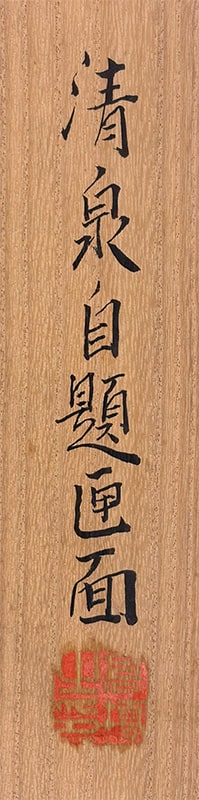 清泉自題匣面